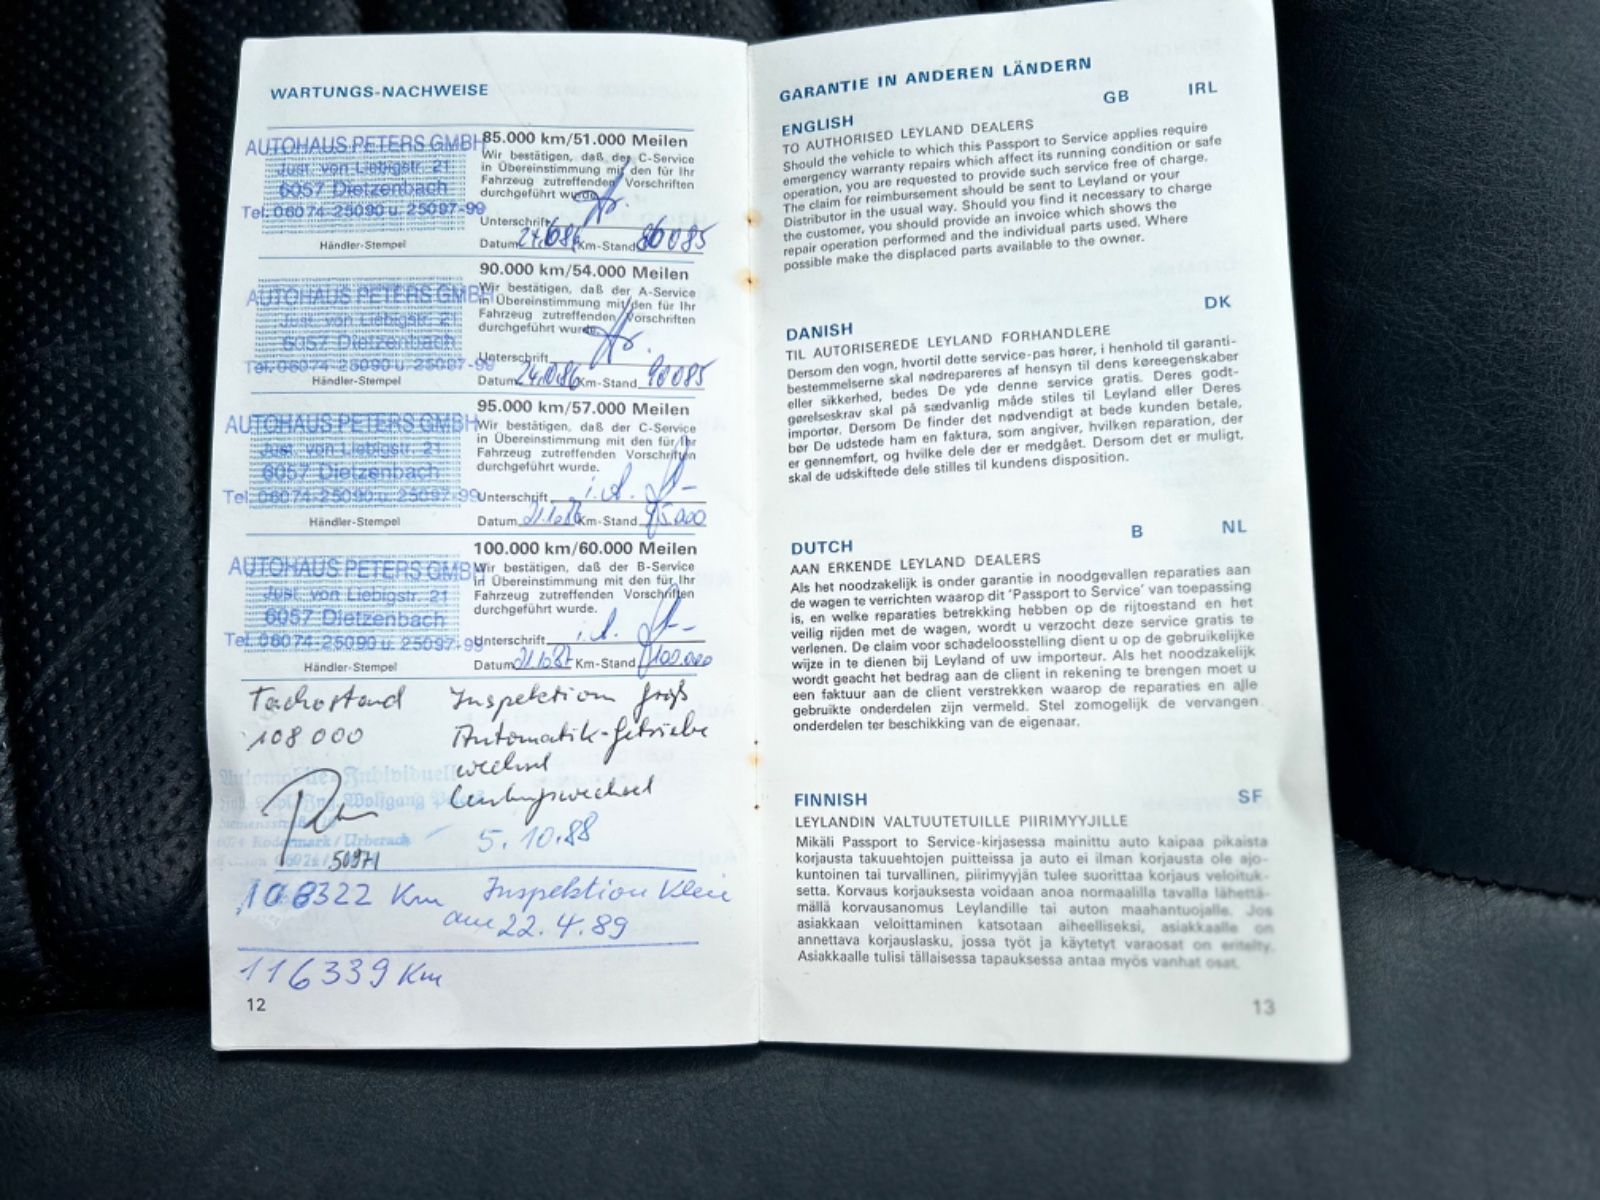 WARTUNGS-NACHWEISE
AUTOHAUS PETERS GMBH
Just. von Liebigstr. 21
6057 Dietzenbach
Tel. 06074-25090 u. 25097-99
Händler-Stempel
85.000 km/51.000 Meilen
Wir bestätigen, daß der C-Service
in Übereinstimmung mit den für Ihr
Fahrzeug zutreffenden Vorschriften
durchgeführt wurde.
Unterschrift
Datum Km-Stand 86085
AUTOHAUS PETERS GMBH
Just. von Liebigstr. 21
6057 Dietzenbach
Tel. 06074-25090 u. 25097-99
Händler-Stempel
90.000 km/54.000 Meilen
Wir bestätigen, daß der A-Service
in Übereinstimmung mit den für Ihr
Fahrzeug zutreffenden Vorschriften
durchgeführt wurde.
Unterschrift
Datum 24.10.86 Km-Stand 90085
AUTOHAUS PETERS GMBH
Just. von Liebigstr. 21
6057 Dietzenbach
Tel. 06074-25090 u. 25097-99
Händler-Stempel
95.000 km/57.000 Meilen
Wir bestätigen, daß der C-Service
in Übereinstimmung mit den für Ihr
Fahrzeug zutreffenden Vorschriften
durchgeführt wurde.
Unterschrift i.A.
Datum Km-Stand 95.000
AUTOHAUS PETERS GMBH
Just. von Liebigstr. 21
6057 Dietzenbach
Tel. 06074-25090 u. 25097-99
Händler-Stempel
100.000 km/60.000 Meilen
Wir bestätigen, daß der B-Service
in Übereinstimmung mit den für Ihr
Fahrzeug zutreffenden Vorschriften
durchgeführt wurde.
Unterschrift i.A.
Datum 21.10.87 Km-Stand 100.000
Tachostand Inspektion groß
108000 Automatik-Getriebe
wechsel
5.10.88
50971
108322 Km Inspektion Klein
am 22.4.89
116339 Km
12
GARANTIE IN ANDEREN LÄNDERN
GB IRL
ENGLISH
TO AUTHORISED LEYLAND DEALERS
Should the vehicle to which this Passport to Service applies require
emergency warranty repairs which affect its running condition or safe
operation, you are requested to provide such service free of charge.
The claim for reimbursement should be sent to Leyland or your
Distributor in the usual way. Should you find it necessary to charge
the customer, you should provide an invoice which shows the
repair operation performed and the individual parts used. Where
possible make the displaced parts available to the owner.
DK
DANISH
TIL AUTORISEREDE LEYLAND FORHANDLERE
Dersom den vogn, hvortil dette service-pas hører, i henhold til garanti-
bestemmelserne skal nødrepareres af hensyn til dens køreegenskaber
eller sikkerhed, bedes De yde denne service gratis. Deres godt-
gørelseskrav skal på sædvanlig måde stiles til Leyland eller Deres
importør. Dersom De finder det nødvendigt at bede kunden betale,
bør De udstede ham en faktura, som angiver, hvilken reparation, der
er gennemført, og hvilke dele der er medgået. Dersom det er muligt,
skal de udskiftede dele stilles til kundens disposition.
B NL
DUTCH
AAN ERKENDE LEYLAND DEALERS
Als het noodzakelijk is onder garantie in noodgevallen reparaties aan
de wagen te verrichten waarop dit 'Passport to Service' van toepassing
is, en welke reparaties betrekking hebben op de rijtoestand en het
veilig rijden met de wagen, wordt u verzocht deze service gratis te
verlenen. De claim voor schadeloosstelling dient u op de gebruikelijke
wijze in te dienen bij Leyland of uw importeur. Als het noodzakelijk
wordt geacht het bedrag aan de client in rekening te brengen moet u
een faktuur aan de client verstrekken waarop de reparaties en alle
gebruikte onderdelen zijn vermeld. Stel zomogelijk de vervangen
onderdelen ter beschikking van de eigenaar.
SF
FINNISH
LEYLANDIN VALTUUTETUILLE PIIRIMYYJILLE
Mikäli Passport to Service-kirjasessa mainittu auto kaipaa pikaista
korjausta takuuehtojen puitteissa ja auto ei ilman korjausta ole ajo-
kuntoinen tai turvallinen, piirimyyjän tulee suorittaa korjaus veloituk-
setta. Korvaus korjauksesta voidaan anoa normaalilla tavalla lähettä-
mällä korvausanomus Leylandille tai auton maahantuojalle. Jos
asiakkaan veloittaminen katsotaan aiheelliseksi, asiakkaalle on
annettava korjauslasku, jossa työt ja käytetyt varaosat on eritelty.
Asiakkaalle tulisi tällaisessa tapauksessa antaa myös vanhat osat.
13